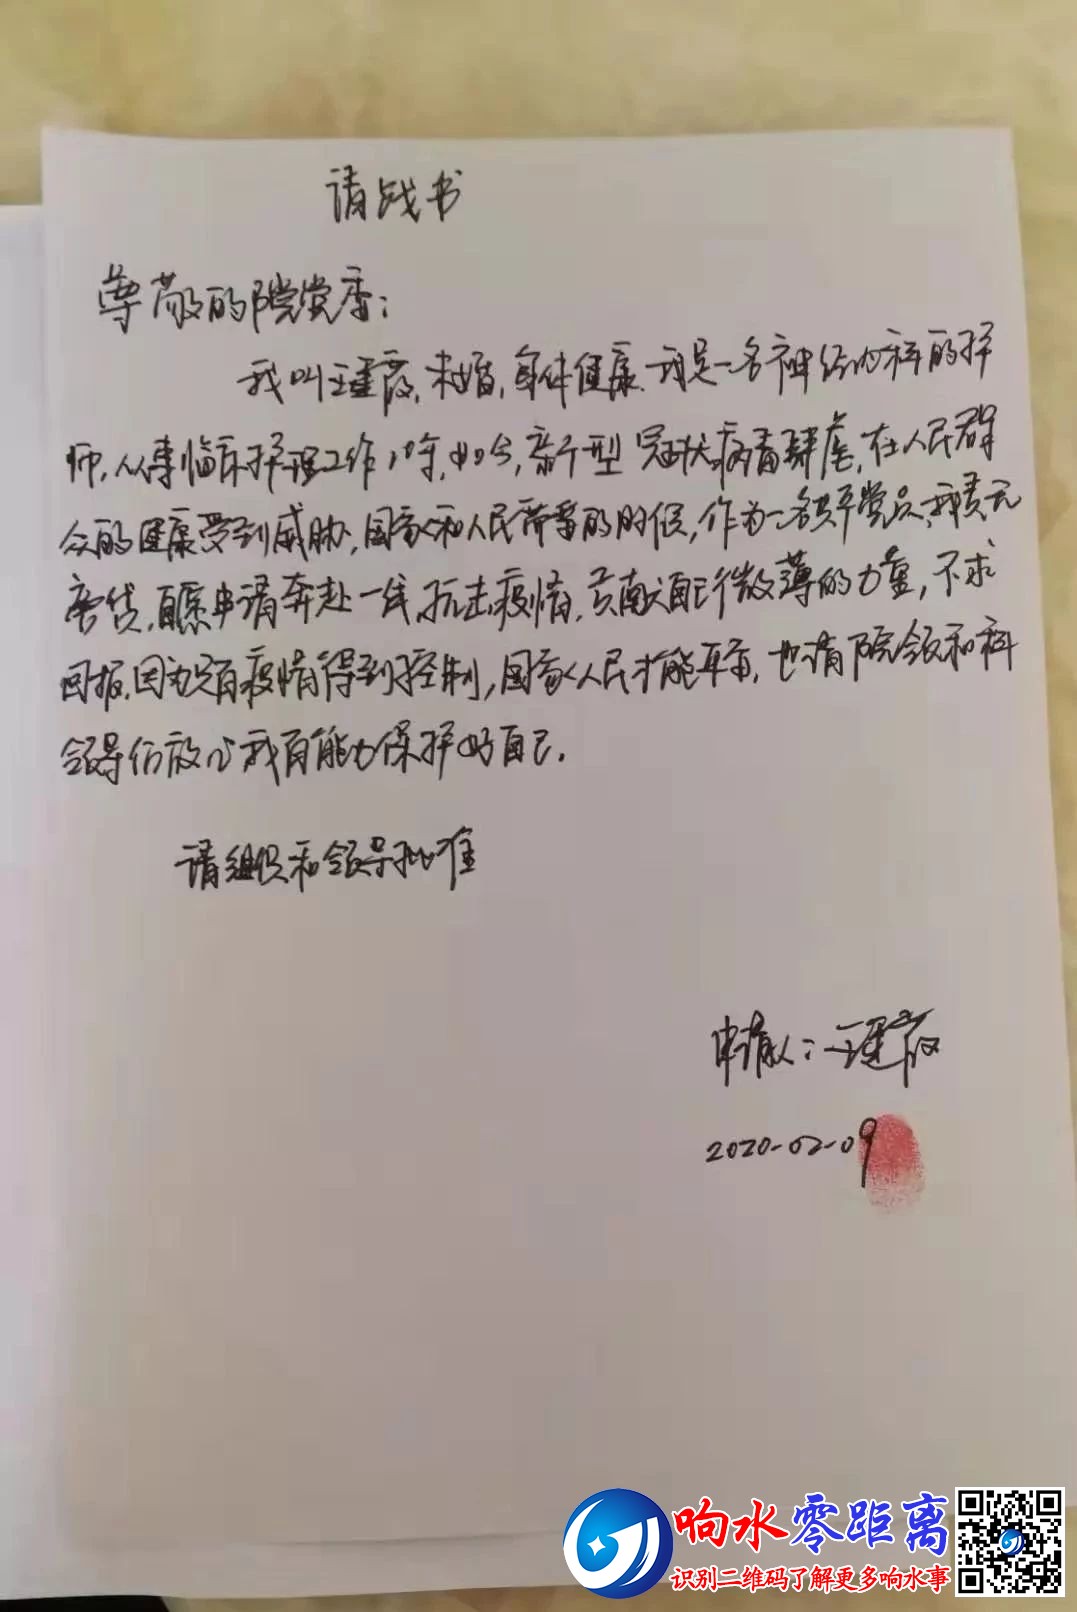 请战书
尊敬的院党委：
我叫王建霞，未婚，身体健康，我是一名神经内科的护
师，从事临床护理工作10年，如今，新型冠状病毒肆虐，在人民群
众的健康受到威胁，国家和人民需要的时候，作为一名共产党员，我责无
旁贷，自愿申请奔赴一线，抗击疫情，贡献自己微薄的力量，不求
回报，因为只有疫情得到控制，国家人民才能平安，也请院领和科
领导们放心我有能力保护好自己。
请组织和领导批准
申请人：王建霞
2020-02-09
响水零距离
识别二维码了解更多响水事